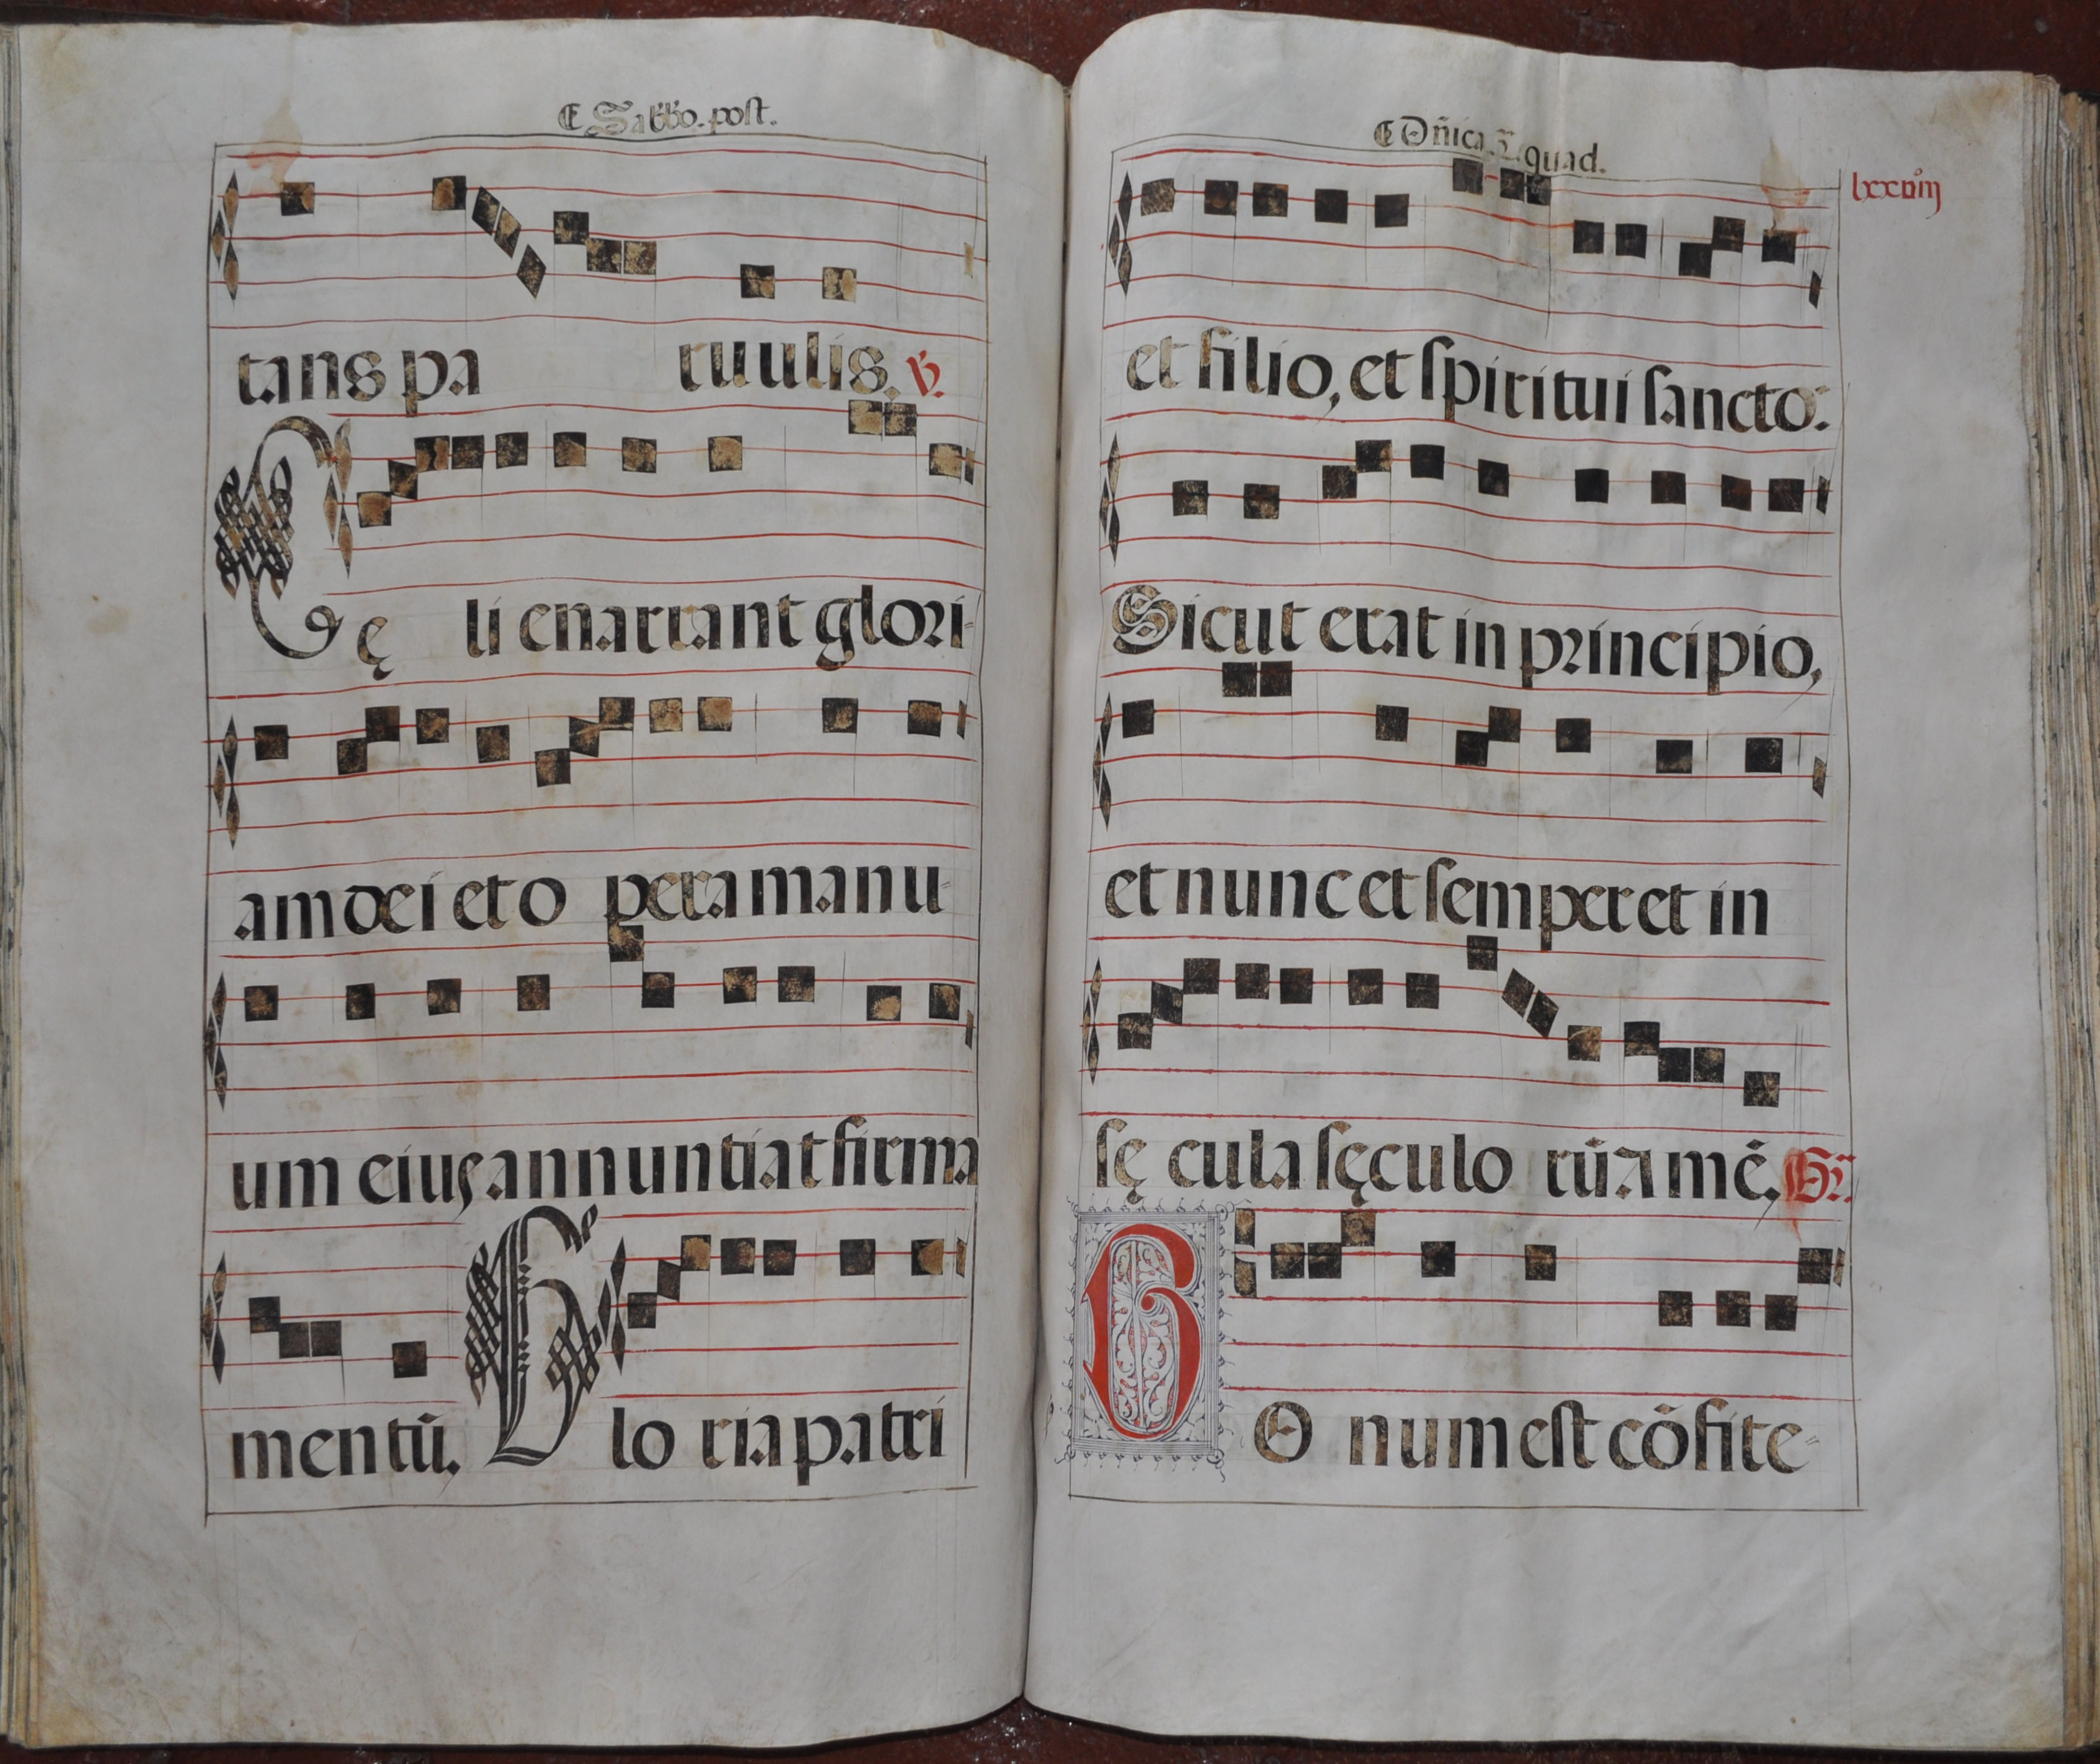 ¶ Sabbo. post.
tans pa ruulis. ℣.
Cę li enarrant glori-
am dei et o pera manu-
um eius annuntiat firma
mentū. Glo ria patri
¶ Dñica. quad.
et filio, et ſpiritui ſancto.
Sicut erat in principio,
et nunc et ſemper et in
ſę cula ſęculo rū amē.
BO num eſt cōfite-